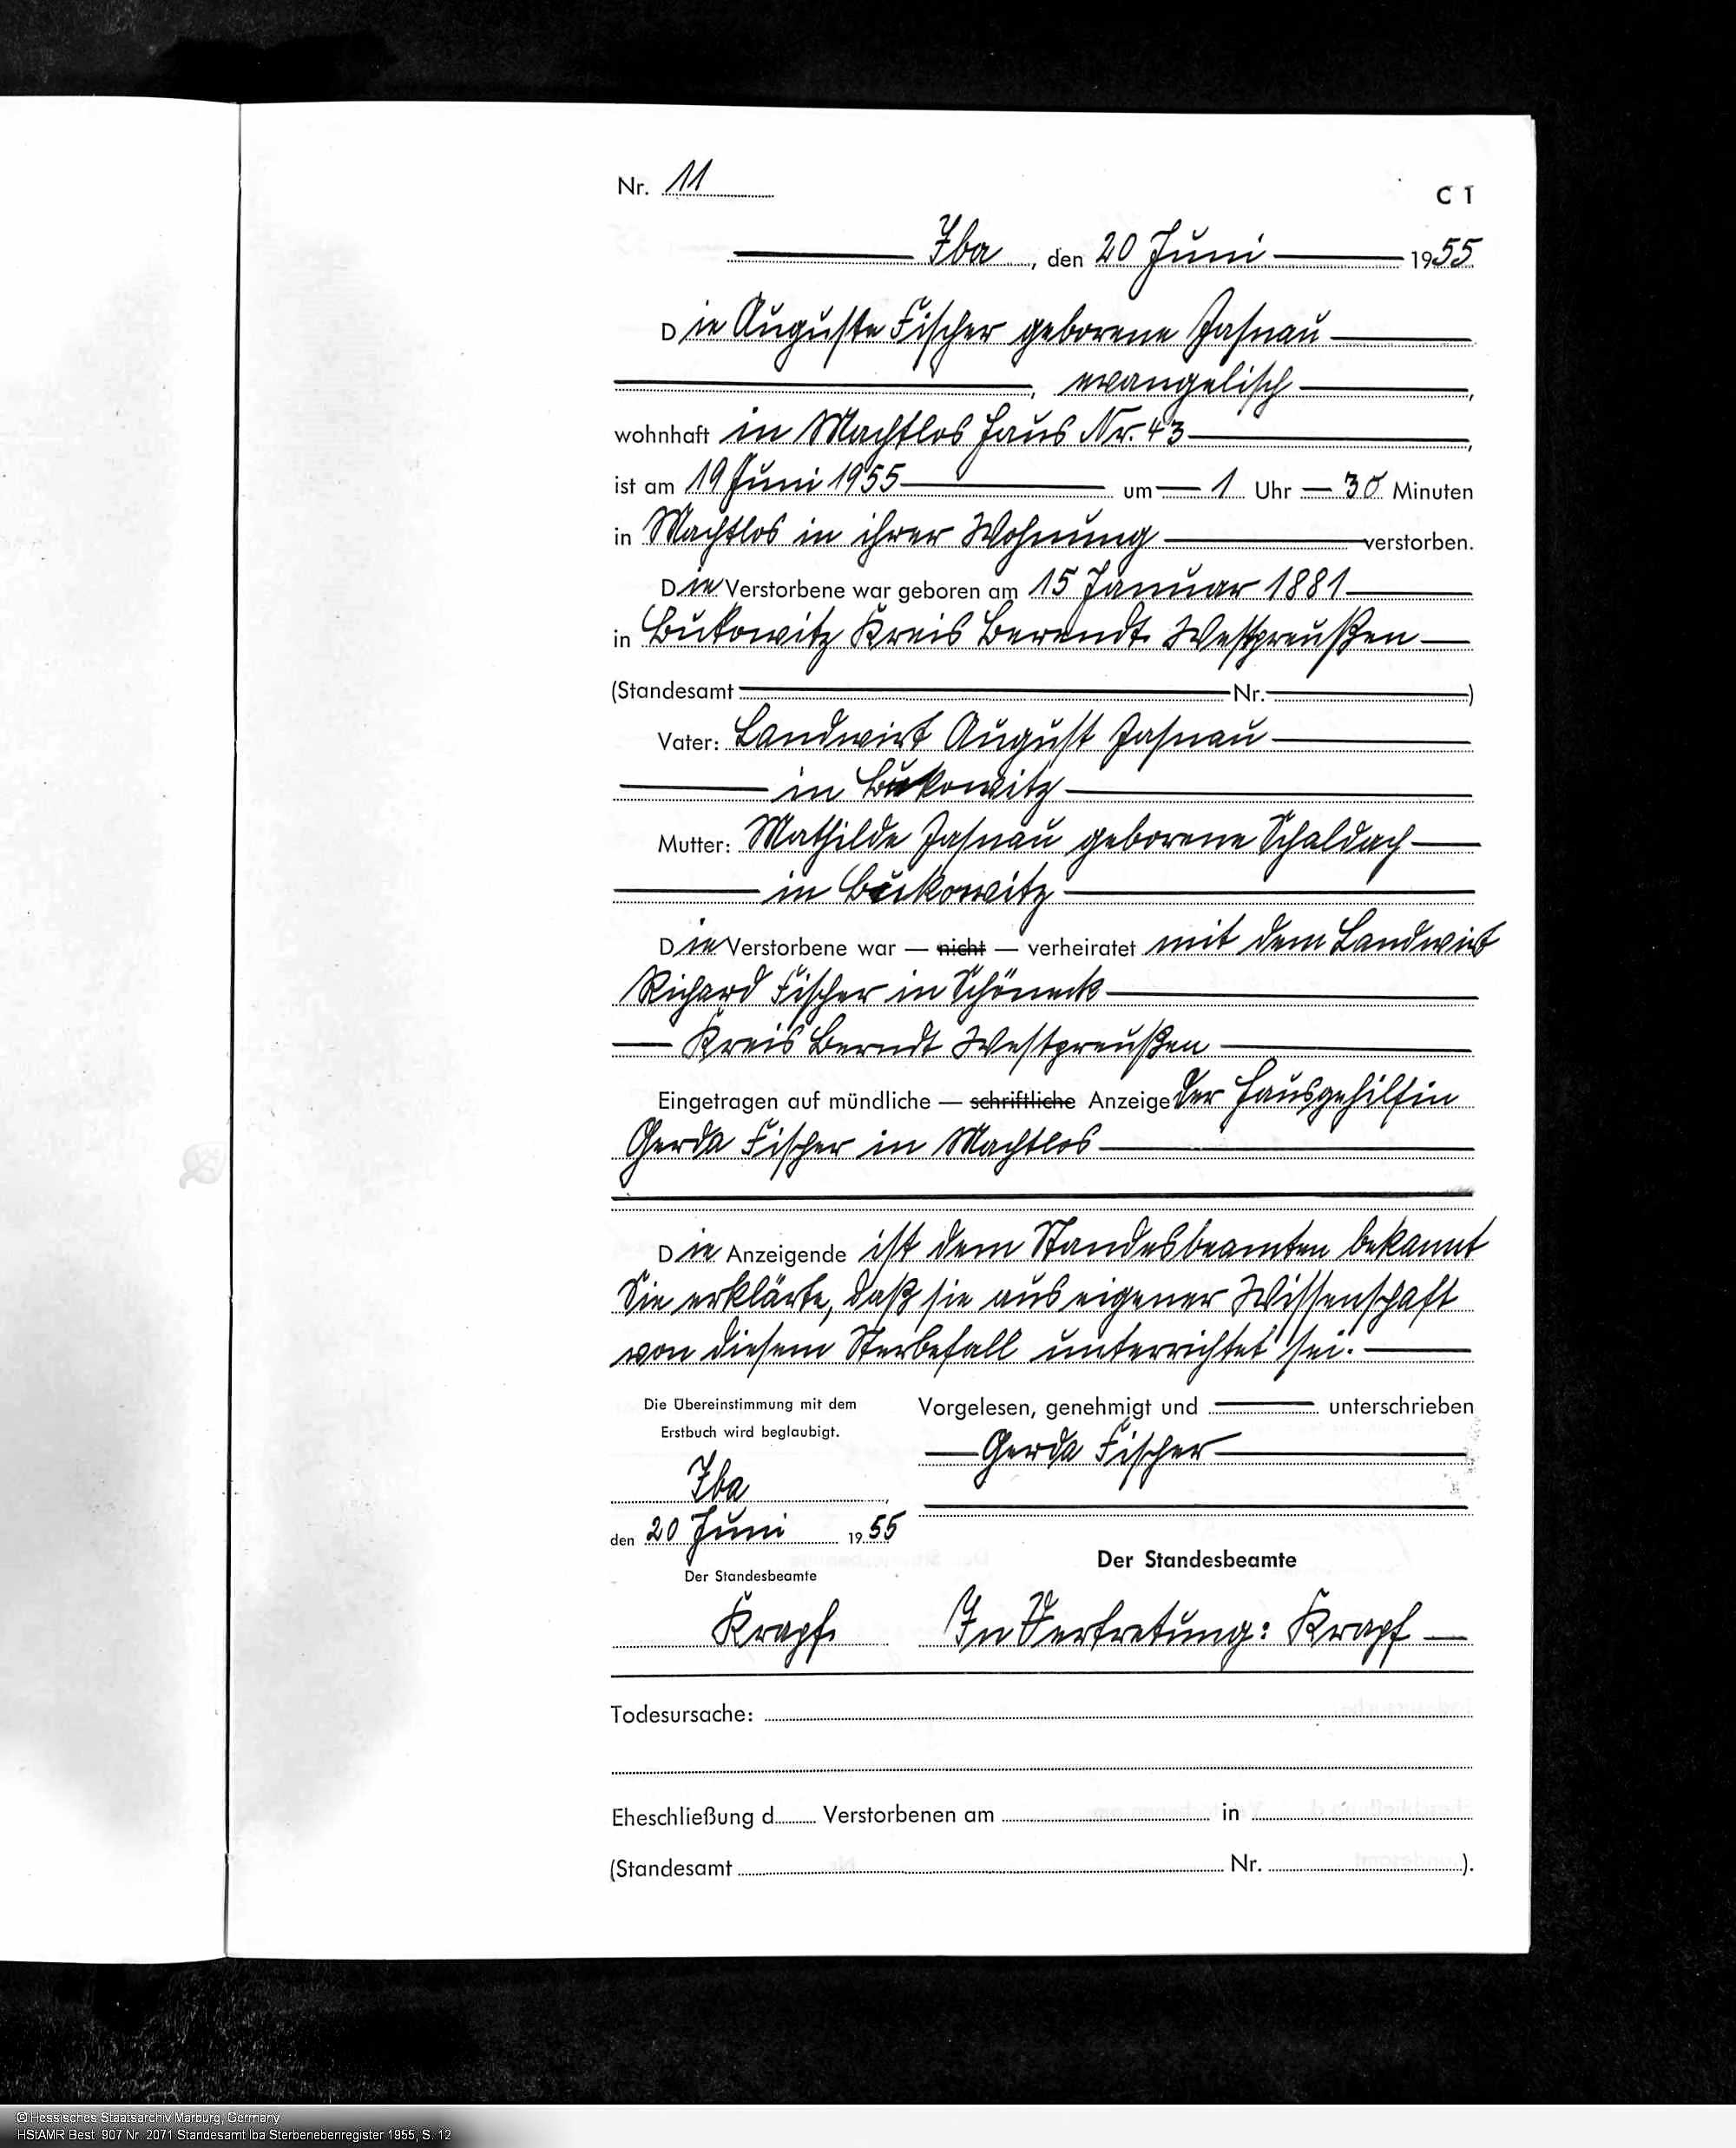 Nr. 11
C 1
Iba, den 20 Juni 1955
Die Auguste Fischer geborene Jasnau
, evangelisch,
wohnhaft in Machtlos Haus Nr. 43,
ist am 19 Juni 1955 um 1 Uhr 30 Minuten
in Machtlos in ihrer Wohnung verstorben.
Die Verstorbene war geboren am 15 Januar 1881
in Bukowitz Kreis Berendt Westpreußen
(Standesamt Nr. )
Vater: Landwirt August Jasnau
in Bukowitz
Mutter: Mathilde Jasnau geborene Schaldach
in Bukowitz
Die Verstorbene war — nicht — verheiratet mit dem Landwirt
Richard Fischer in Schöneck
Kreis Berndt Westpreußen
Eingetragen auf mündliche — schriftliche Anzeige der Hausgehilfin
Gerda Fischer in Machtlos
Die Anzeigende ist dem Standesbeamten bekannt
Sie erklärte, daß sie aus eigener Wissenschaft
von diesem Sterbefall unterrichtet sei.
Die Übereinstimmung mit dem
Erstbuch wird beglaubigt.
Iba,
den 20 Juni 1955
Der Standesbeamte
Krapf
Vorgelesen, genehmigt und unterschrieben
Gerda Fischer
Der Standesbeamte
In Vertretung: Krapf
Todesursache:
Eheschließung d Verstorbenen am in
(Standesamt Nr. ).
© Hessisches Staatsarchiv Marburg, Germany
HStAMR Best. 907 Nr. 2071 Standesamt Iba Sterbenebenregister 1955, S. 12